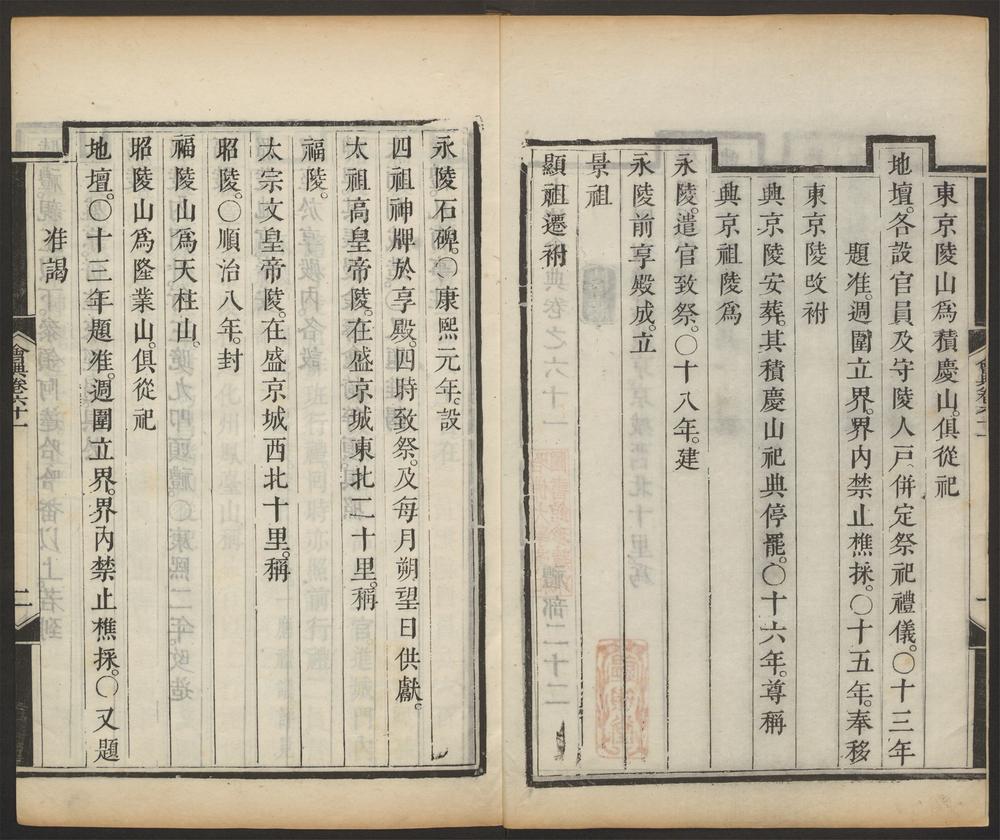 東京陵山爲積慶山。俱從祀
地壇。各設官員及守陵人戶、併定祭祀禮儀。〇十三年
題准。週圍立界。界內禁止樵採。〇十五年。奉移
東京陵改祔
興京陵安葬。其積慶山祀典停罷。〇十六年。尊稱
興京祖陵爲
永陵。遣官致祭。〇十八年。建
永陵前享殿成。立
景祖
顯祖遷祔
永陵。石碑。〇康熙元年。設
四祖神牌於享殿。四時致祭。及每月朔望日供獻。
太祖高皇帝陵。在盛京城東北二十里。稱
福陵。
太宗文皇帝陵。在盛京城西北十里。稱
昭陵。〇順治八年。封
福陵山爲天柱山。
昭陵山爲隆業山。俱從祀
地壇。〇十三年題准。週圍立界。界內禁止樵採。〇又題
准謁
會典卷六十一
二